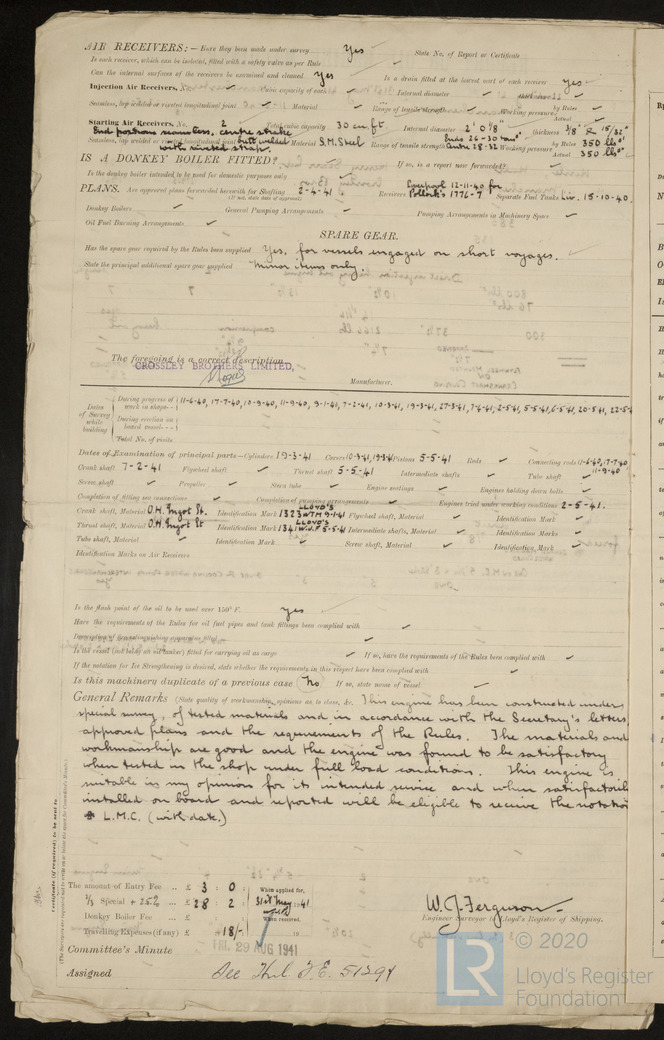 AIR RECEIVERS:— Have they been made under survey Yes State No. of Report or Certificate
Is each receiver, which can be isolated, fitted with a safety valve as per Rule
Can the internal surfaces of the receivers be examined and cleaned yes Is a drain fitted at the lowest part of each receiver yes
Injection Air Receivers, No. Cubic capacity of each Internal diameter thickness
Seamless, lap welded or riveted longitudinal joint Material Range of tensile strength Working pressure by Rules
Actual
Starting Air Receivers, No. 2 Total cubic capacity 30 cu ft Internal diameter 2' 0 1/8" thickness 3/8" & 15/32"
End portions seamless, centre strake Ends 26-30 tons
Seamless, lap welded or riveted longitudinal joint butt welded Material S.M. Steel Range of tensile strength Centre 28-32 Working pressure by Rules 350 lbs □"
with riveted strap. Actual 350 lbs □"
IS A DONKEY BOILER FITTED? If so, is a report now forwarded?
Is the donkey boiler intended to be used for domestic purposes only
PLANS. Are approved plans forwarded herewith for Shafting 2-4-41 Receivers Liverpool 12-11-40 for Pollock's 1776-7 Separate Fuel Tanks Liv. 15-10-40.
(If not, state date of approval)
Donkey Boilers General Pumping Arrangements Pumping Arrangements in Machinery Space
Oil Fuel Burning Arrangements
SPARE GEAR.
Has the spare gear required by the Rules been supplied Yes, for vessels engaged on short voyages.
State the principal additional spare gear supplied Minor items only.
The foregoing is a correct description
CROSSLEY BROTHERS LIMITED,
Manufacturer.
Dates of Survey while building
During progress of work in shops - - 11-6-40, 17-7-40, 10-9-40, 11-9-40, 9-1-41, 7-2-41, 10-3-41, 19-3-41, 27-3-41, 7-4-41, 2-5-41, 5-5-41, 6-5-41, 20-5-41, 22-5-4
During erection on board vessel - - -
Total No. of visits
Dates of Examination of principal parts—Cylinders 19-3-41 Covers 10-3-41, 19-3-41 Pistons 5-5-41 Rods Connecting rods 11-6-40, 17-7-40
11-9-40
Crank shaft 7-2-41 Flywheel shaft Thrust shaft 5-5-41 Intermediate shafts Tube shaft
Screw shaft Propeller Stern tube Engine seatings Engines holding down bolts
Completion of fitting sea connections Completion of pumping arrangements Engines tried under working conditions 2-5-41.
Crank shaft, Material O.H. Ingot St. Identification Mark LLOYD'S 1323 WTM 9-1-41 Flywheel shaft, Material Identification Mark
Thrust shaft, Material O.H. Ingot St Identification Mark LLOYD'S 1341 W.J.F 5-5-41 Intermediate shafts, Material Identification Marks
Tube shaft, Material Identification Mark Screw shaft, Material Identification Mark
Identification Marks on Air Receivers
Is the flash point of the oil to be used over 150° F. yes
Have the requirements of the Rules for oil fuel pipes and tank fittings been complied with
Description of fire extinguishing apparatus fitted
Is the vessel (not being an oil tanker) fitted for carrying oil as cargo If so, have the requirements of the Rules been complied with
If the notation for Ice Strengthening is desired, state whether the requirements in this respect have been complied with
Is this machinery duplicate of a previous case No If so, state name of vessel
General Remarks (State quality of workmanship, opinions as to class, &c. This engine has been constructed under
special survey, of tested materials and in accordance with the Secretary's letters,
approved plans and the requirements of the Rules. The materials and
workmanship are good and the engine was found to be satisfactory
when tested in the shop under full load conditions. This engine is
suitable in my opinion for its intended service and when satisfactorily
installed on board and reported will be eligible to receive the notation
L.M.C. (with date.)
Certificate (if required) to be sent to
(The Surveyors are requested not to write on or below the space for Committee's Minute.)
The amount of Entry Fee .. £ 3 : 0 : When applied for,
2/3 Special + 25% .. £ 28 : 2 : 31st May 1941
Donkey Boiler Fee ... £ : : When received,
Travelling Expenses (if any) £ : 18/- : 19
W.J. Ferguson
Engineer Surveyor to Lloyd's Register of Shipping.
Committee's Minute FRI. 29 AUG 1941
Assigned See Hul F.E. 51294
LR
© 2020
Lloyd's Register
Foundation